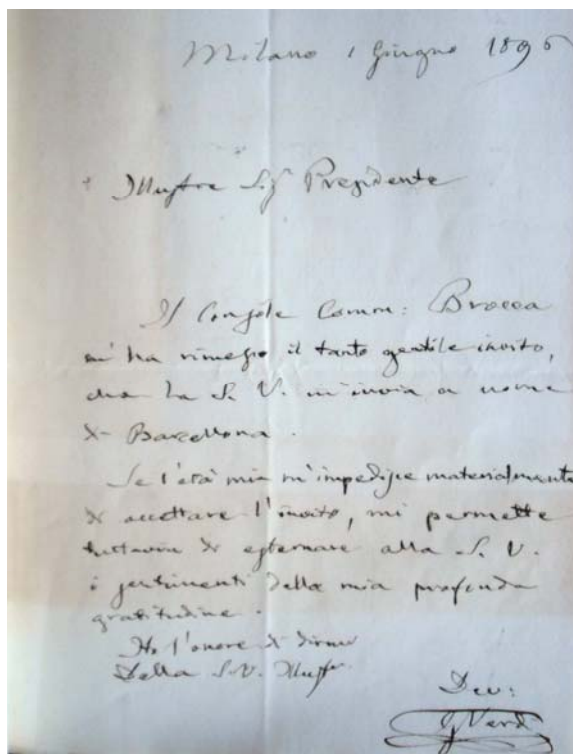 Milano 1 Giugno 1896
Illustre Sig Presidente
Il Console Comm: Brocca
m'ha rimesso il tanto gentile invito,
che la S. V. m'invia a nome
di Barcellona.
Se l'età mia m'impedisce materialmente
di accettare l'invito, mi permette
tuttavia di esternare alla S. V.
i sentimenti della mia profonda
gratitudine.
Ho l'onore di dirmi
Della S. V. Illustr
Dev:
G Verdi